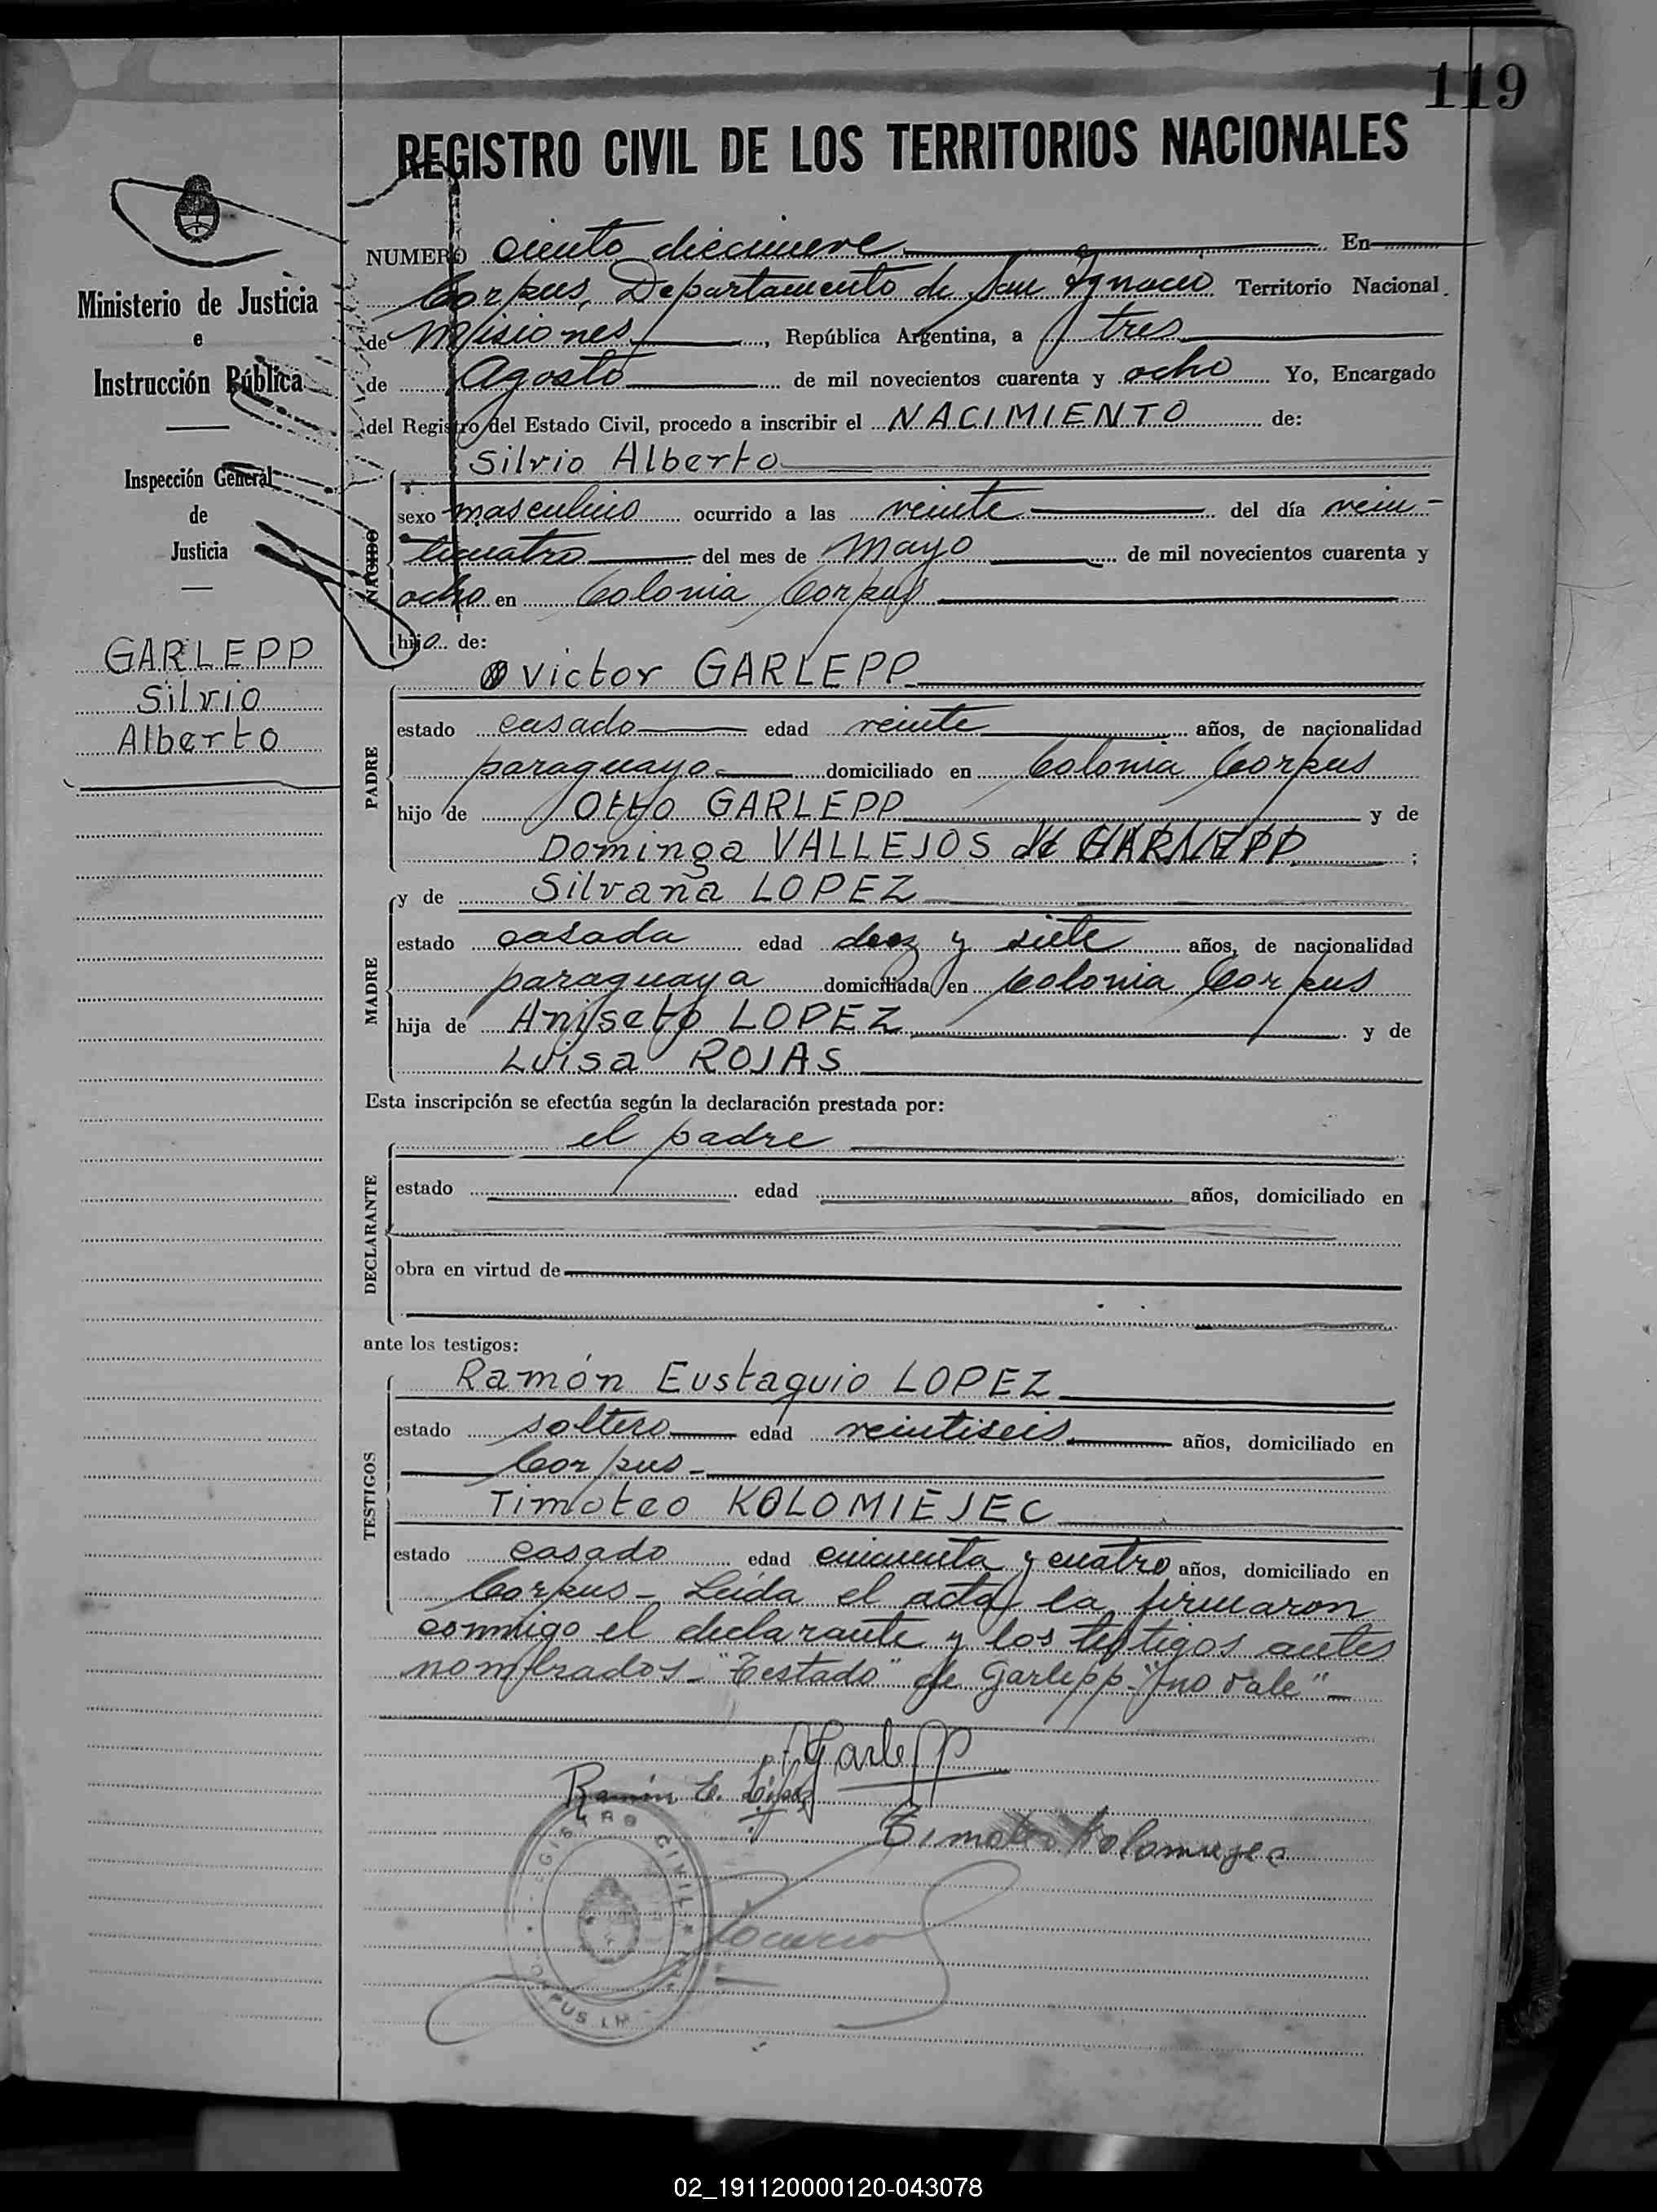 119
REGISTRO CIVIL DE LOS TERRITORIOS NACIONALES
Ministerio de Justicia
e
Instrucción Pública
Inspección General
de
Justicia
GARLEPP
Silvio
Alberto
NUMERO ciento diecinueve En
Corpus, Departamento de San Ignacio Territorio Nacional
de Misiones, República Argentina, a tres
de Agosto de mil novecientos cuarenta y ocho Yo, Encargado
del Registro del Estado Civil, procedo a inscribir el NACIMIENTO de:
NACIDO
Silvio Alberto
sexo masculino ocurrido a las veinte del día vein-
ticuatro del mes de Mayo de mil novecientos cuarenta y
ocho en Colonia Corpus
hijo de:
PADRE
Victor GARLEPP
estado casado edad veinte años, de nacionalidad
paraguaya domiciliado en Colonia Corpus
hijo de Otto GARLEPP y de
Dominga VALLEJOS de GARLEPP ;
MADRE
y de Silvana LOPEZ
estado casada edad diez y siete años, de nacionalidad
paraguaya domiciliada en Colonia Corpus
hija de Aniseto LOPEZ y de
Luisa ROJAS
Esta inscripción se efectúa según la declaración prestada por:
DECLARANTE
el padre
estado edad años, domiciliado en
obra en virtud de
ante los testigos:
TESTIGOS
Ramón Eustaquio LOPEZ
estado soltero edad veintiseis años, domiciliado en
Corpus -
Timoteo KOLOMIEJEC
estado casado edad cincuenta y cuatro años, domiciliado en
Corpus - Leída el acta la firmaron
conmigo el declarante y los testigos antes
nombrados - "Testado" de Garlepp - "no vale" -
Garlepp
Ramón E. López
Timoteo Kolomiejec
REGISTRO CIVIL
CORPUS
02_191120000120-043078